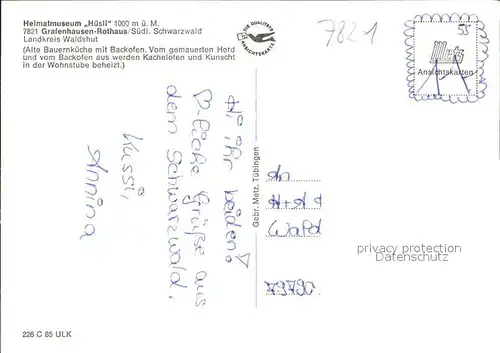 Heimatmuseum „Hüsli" 1000 m ü. M.
7821 Grafenhausen-Rothaus/Südl. Schwarzwald
Landkreis Waldshut
(Alte Bauernküche mit Backofen. Vom gemauerten Herd
und vom Backofen aus werden Kachelofen und Kunscht
in der Wohnstube beheizt.)
DIE QUALITÄTS
ANSICHTSKARTE
7821
55
Metz
Ansichtskarten
Hi ihr beiden!
♡-liche Grüße aus
dem Schwarzwald.
Kussi,
Annina
Gebr. Metz, Tübingen
An
A+A
Wald
79790
privacy protection
Datenschutz
226 C 85 ULK